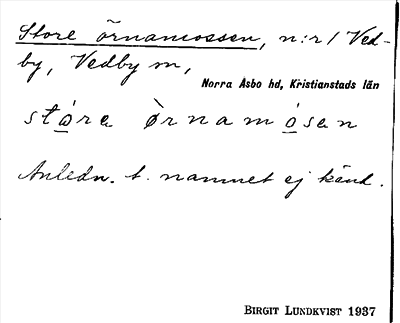 Store örnamossen, n:r 1 Ved-
by, Vedby sn,
Norra Åsbo hd, Kristianstads län
stòra ö̀rnamòsan
Anledn. t. namnet ej känd.
BIRGIT LUNDKVIST 1937